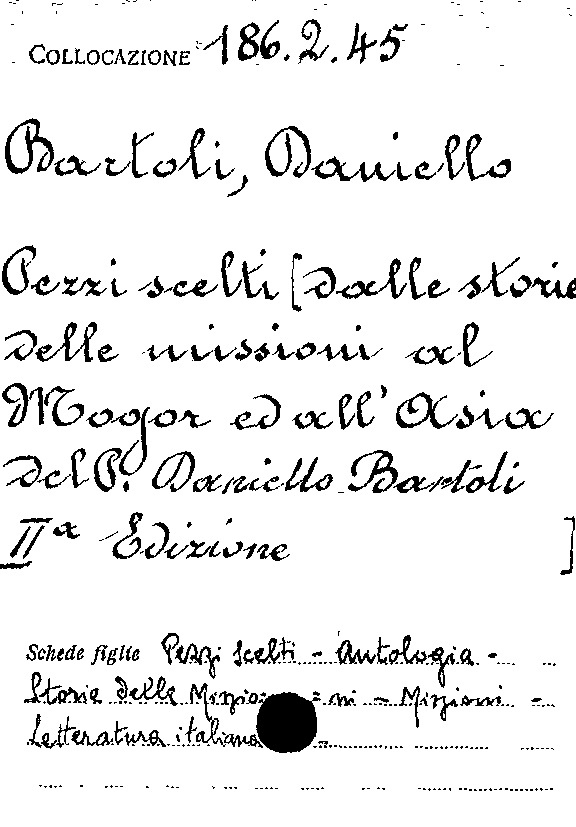 COLLOCAZIONE 186.2.45
Bartoli, Daniello
Pezzi scelti [dalle storie
delle missioni al
Mogor ed all'Asia
del P. Daniello Bartoli
IIª Edizione ]
Schede figlie Pezzi scelti - Antologia -
Storie delle Missio= =ni - Missioni -
Letteratura italiana -